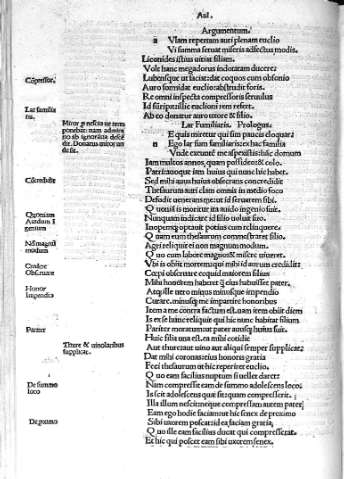 Aul.
Argumentum.
a Vlam repertam auri plenam euclio
Vi summa seruat miseris adfectus modis.
Liconides istius uitiat filiam.
Volt hanc megadorus indotatam ducere:
Lubensque ut faciat: dat coquos cum obsonio
Auro formidat euclio: abstrudit foris.
Re omni inspecta compressoris seruulus
Id surripit: illic euclioni rem refert.
Ab eo donatur auro uxore & filio.
Lar Familiaris. Prologus.
E quis miretur qui sim paucis eloquar:
Ego lar sum familiaris ex hac familia
Vnde exeunte me aspexistis: hác domum
Iam multos annos quum possideo: & colo.
Patri auoque iam huius qui nunc hic habet.
Sed mihi auus huius obsecrans concredidit
Thesaurum auri clam omnis in medio foco
Defodit uenerans me ut id seruarem sibi.
Q uoniam is moritur ita auido ingenio fuit.
Nunquam indicare id filio uoluit suo.
Inopemque optauit potius eum relinquere.
Q uam eum thesaurum commonstraret filio.
Agri reliquit ei non magnum modum.
Q uo cum labore magno & misere uiueret.
Vbi is obiit mortem qui mihi id aurum credidit
Cœpi obseruare ecquid maiorem filius
Mihi honorem haberet q̃ eius habuisset pater.
Atque ille uero minus minusque impendio
Curare. minusque me impartire honoribus
Item a me contra factum est. nam item obiit diem
Is ex se hunc reliquit qui hic nunc habitat filium
Pariter moratum ut pater auusque huius fuit.
Huic filia una est. ea mihi cotidie
Aut thure aut uino aut aliqui semper supplicat:
Dat mihi coronas: eius honoris gratia
Feci thesaurum ut hic reperiret euclio.
Q uo eam facilius nuptum si uellet daret:
Nam compressit eam de summo adolescens loco.
Is scit adolescens quæ sit quam compresserit.
Illa illum nescit: neque compressam autem pater.
Eam ego hodie faciam ut hic senex de proximo
Sibi uxorem poscat: id ea faciam gratia.
Q uo ille eam facilius ducat qui compresserat.
Et hic qui poscet eam sibi uxorem senex.
Cõpressor.
Lar familia
ris.
Concredidit
Quoniam
Auidum i
genium
Nõ magnũ
modum
Obseruare
Honor
Impendio
Pariter
Thure & uino laribus
supplicat.
De summo
loco
De proximo